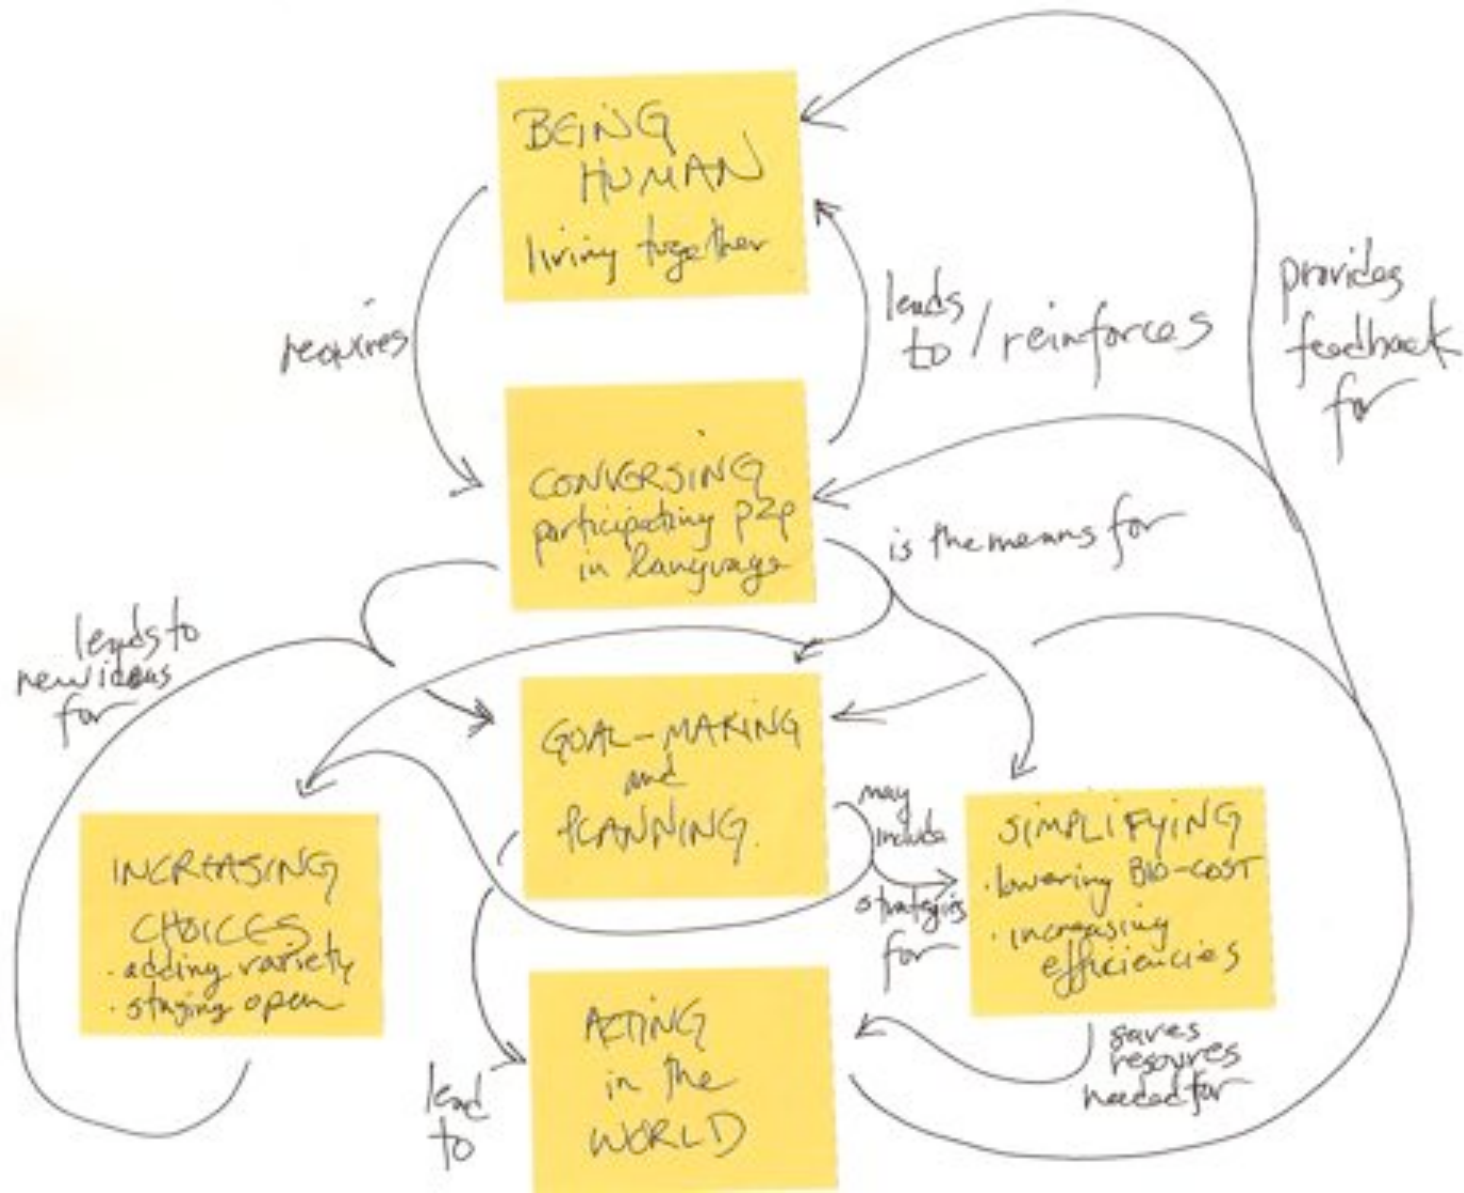 BEING
HUMAN
living together
requires
leads
to / reinforces
provides
feedback
for
CONVERSING
participating p2p
in language
is the means for
leads to
new ideas
for
GOAL-MAKING
and
PLANNING.
may
include
strategies
for
SIMPLIFYING
· lowering BIO-COST
· increasing
efficiencies
INCREASING
CHOICES
· adding variety
· staying open
ACTING
in the
WORLD
lead
to
saves
resources
needed for